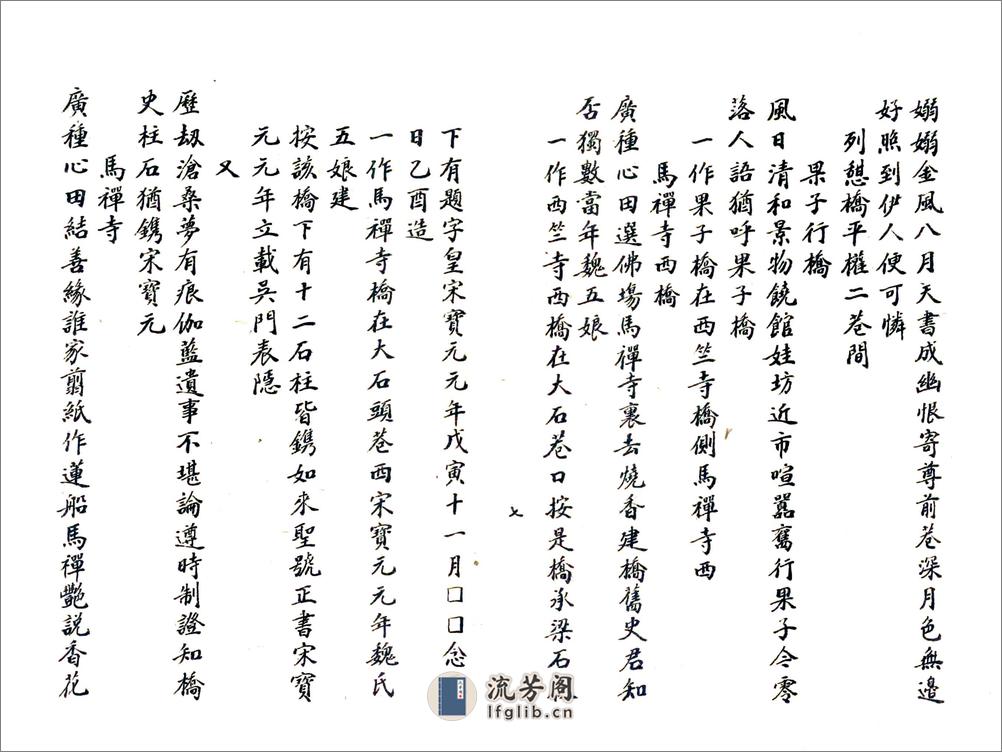 嫋嫋金風八月天書成幽恨寄尊前巷深月色無邊
好照到伊人便可憐
列憩橋平櫳二巷間
果子行橋
風日清和景物饒館娃坊近市喧囂舊行果子今零
落人語猶呼果子橋
一作果子橋在西竺寺橋側馬禪寺西
馬禪寺西橋
廣種心田選佛場馬禪寺裏去燒香建橋舊史君知
否獨數當年魏五娘
一作西竺寺西橋在大石巷口按是橋承梁石
七
下有題字皇宋寶元元年戊寅十一月囗囗念
日乙酉造
一作馬禪寺橋在大石頭巷西宋寶元元年魏氏
五娘建
按該橋下有十二石柱皆鐫如來聖號正書宋寶
元元年立載吳門表隱
又
歷劫滄桑夢有痕伽藍遺事不堪論遵時制證知橋
史柱石猶鐫宋寶元
馬禪寺
廣種心田結善緣誰家翦紙作蓮船馬禪艷説香花
流芳阁
lfglib.cn